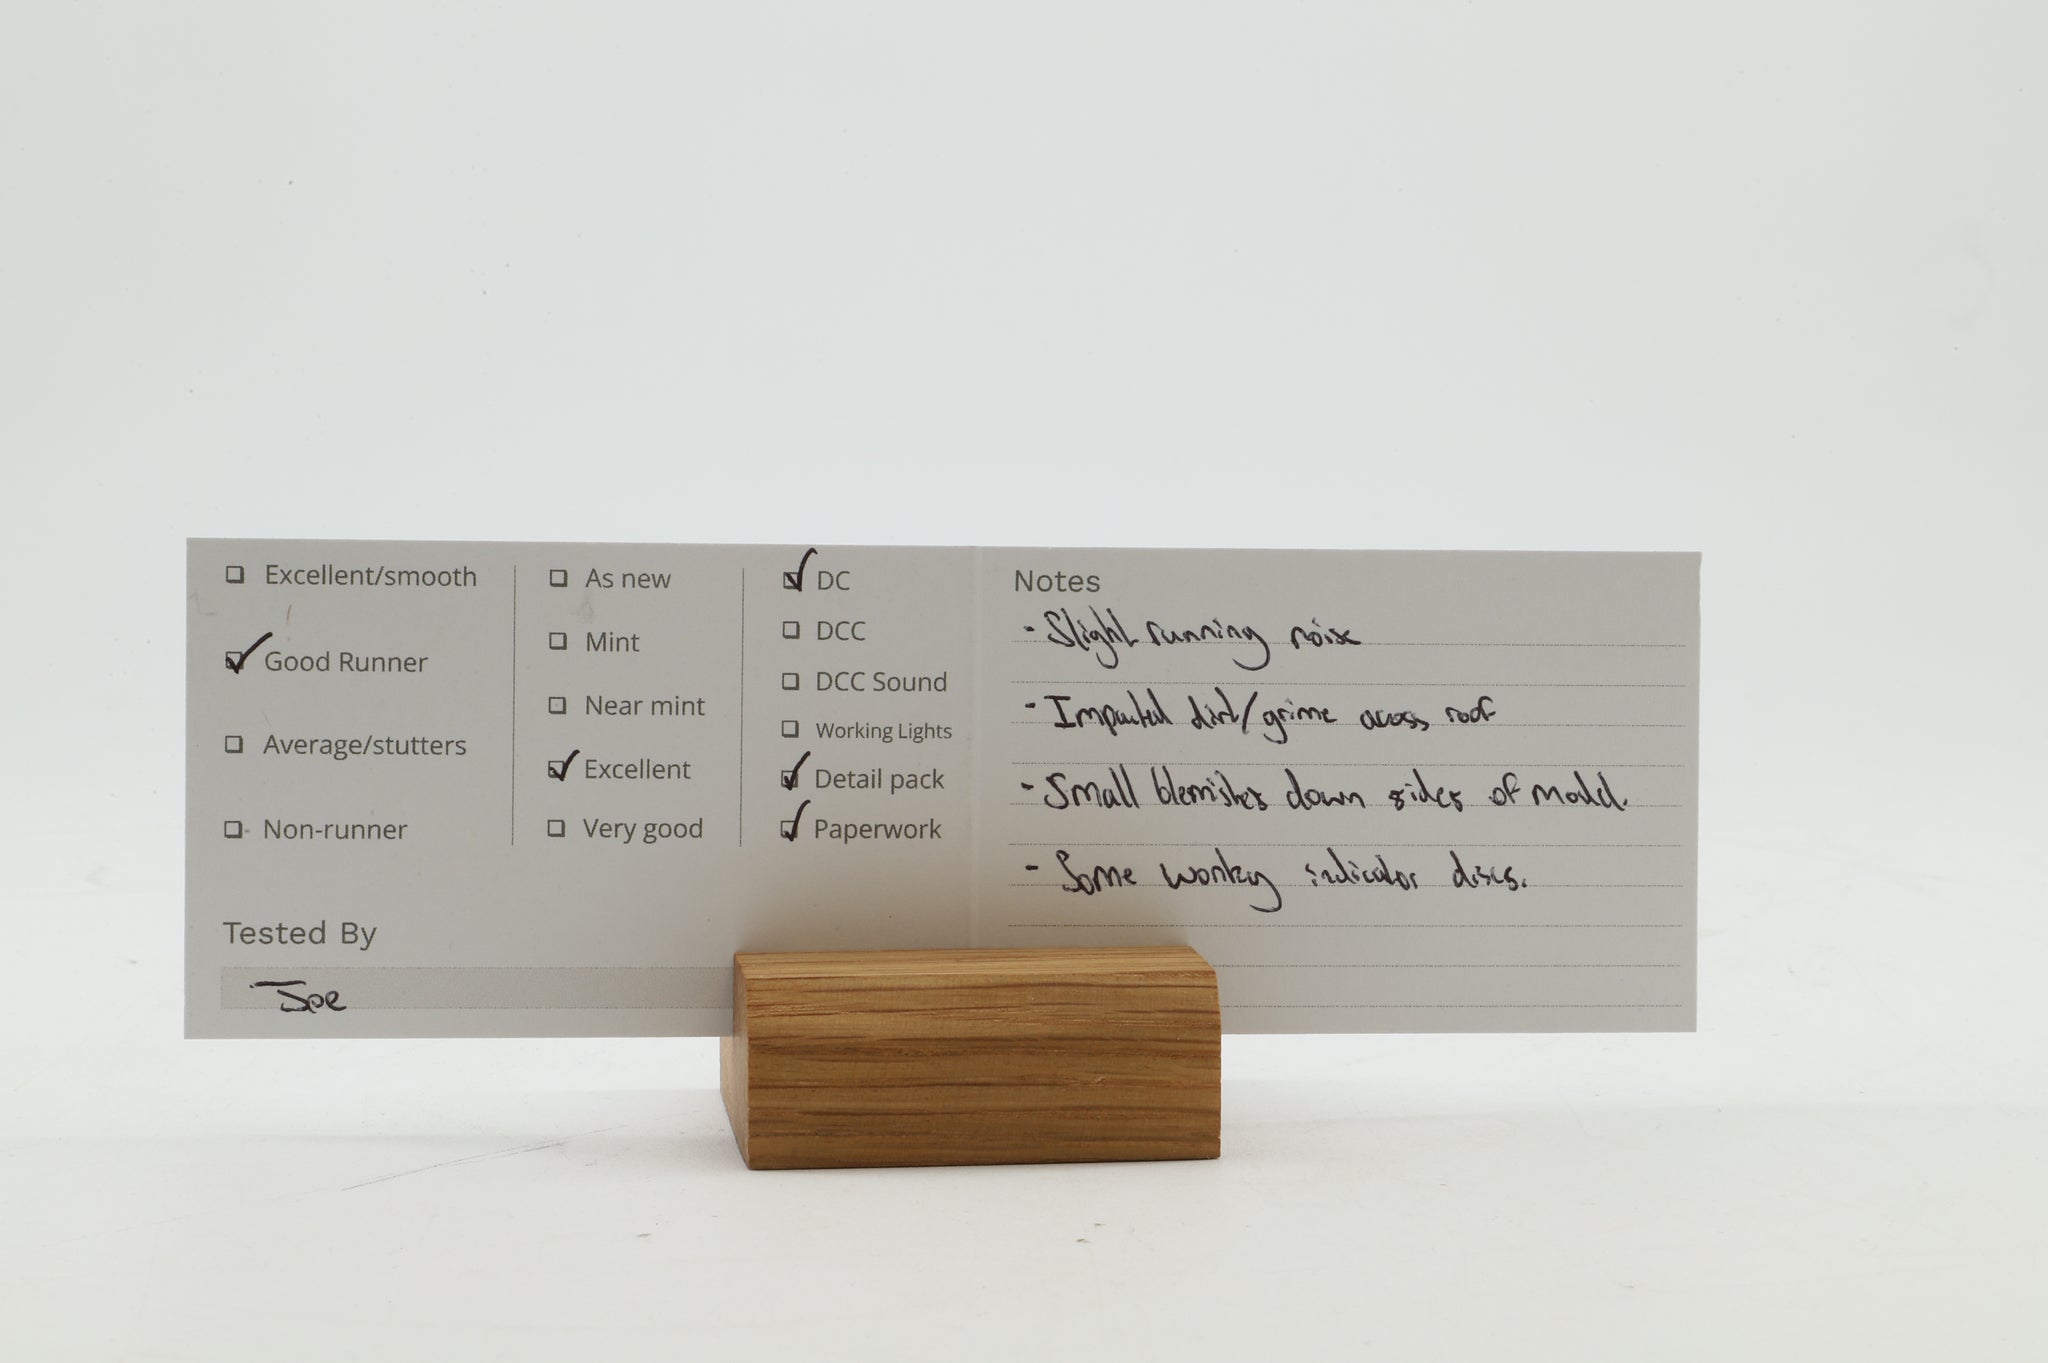 Excellent/smooth
Good Runner
Average/stutters
Non-runner
As new
Mint
Near mint
Excellent
Very good
DC
DCC
DCC Sound
Working Lights
Detail pack
Paperwork
Tested By
Joe
Notes
- Slight running noise
- Impacted dirt/grime across roof
- Small blemishes down sides of model.
- Some wonky indicator discs.